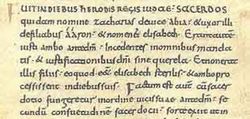 FUIT IN DIEBUS HERODIS REGIS IUDAE SACERDOS
quidam nomine Zacharias de uice Abia & uxor illi
de filiabus Aaron & nomen eius elisabeth. Erant autem
iusti ambo ante dm̄. Incedentes in omnibus manda
tis & iustificationibus dn̄i sine querela. Et non erat
illis filius eo quod ess& elisabeth sterilis & ambo pro
cessissent in diebus suis. Factum est autē cū sacer
dotio fungeretur in ordine uicis suae ante dm̄ se
cundū consuetudinē sacerdotii sorte exiit ut in